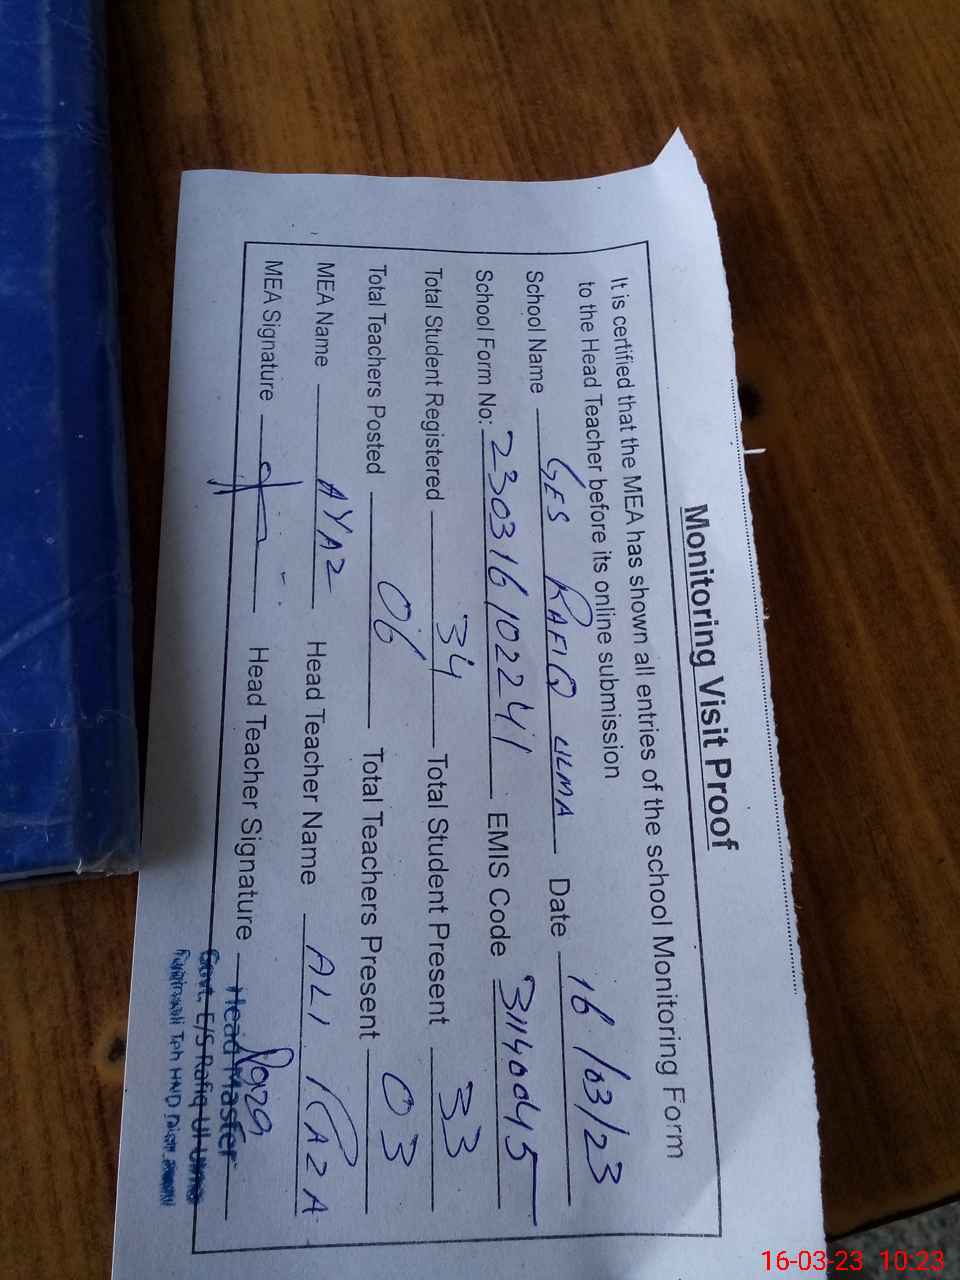 Monitoring Visit Proof
It is certified that the MEA has shown all entries of the school Monitoring Form
to the Head Teacher before its online submission
School Name GES RAFIQ ULMA Date 16/03/23
School Form No: 23031610224 1 EMIS Code 31140045
Total Student Registered 34 Total Student Present 33
Total Teachers Posted 06 Total Teachers Present 03
MEA Name AYAZ Head Teacher Name ALI RAZA
MEA Signature Head Teacher Signature Raza
Head Master
Govt. E/S Rafiq Ul Ulma
Tph HND
16-03-23 10:23